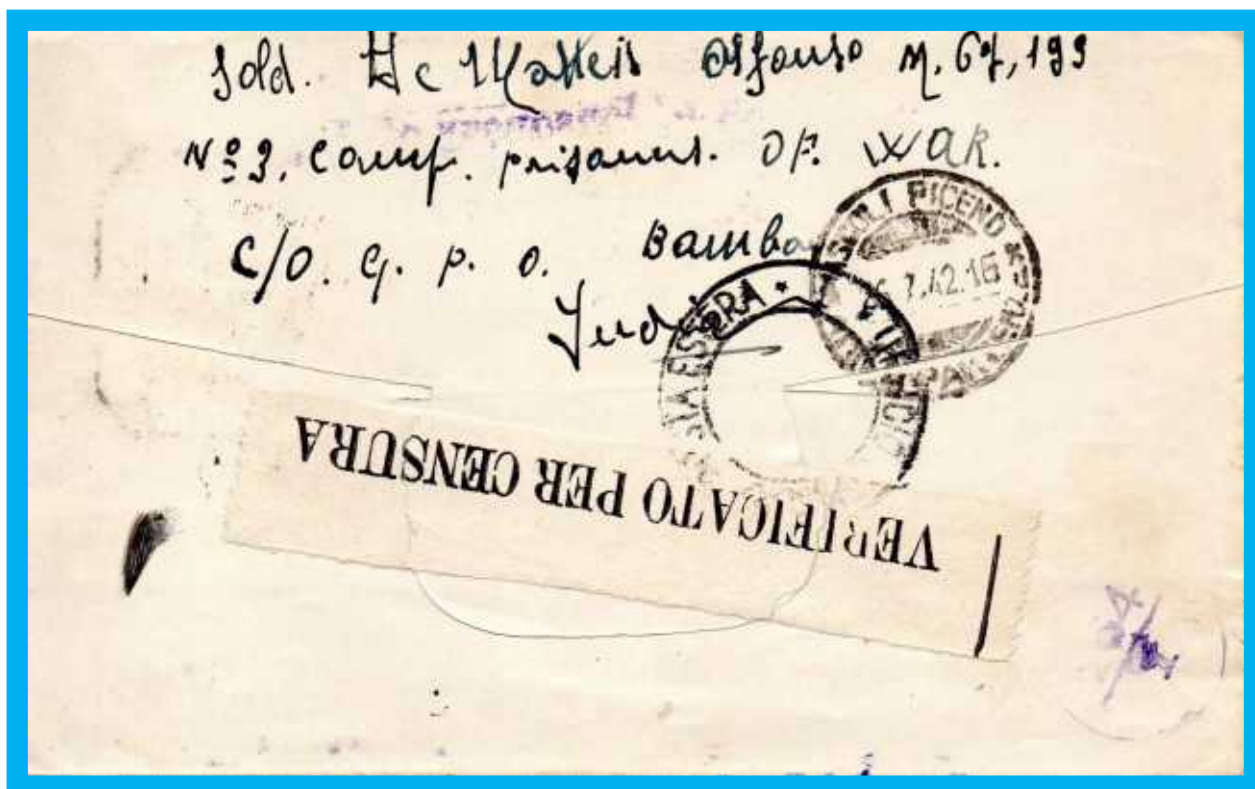 Sold. De Matteis Alfonso M. 67,199
Nº 3, camp. prisoners. OF. WAR.
C/O. G. P. O. Bambay
India
ASCOLI PICENO
7.42.16
ESTERA
VERIFICATO PER CENSURA